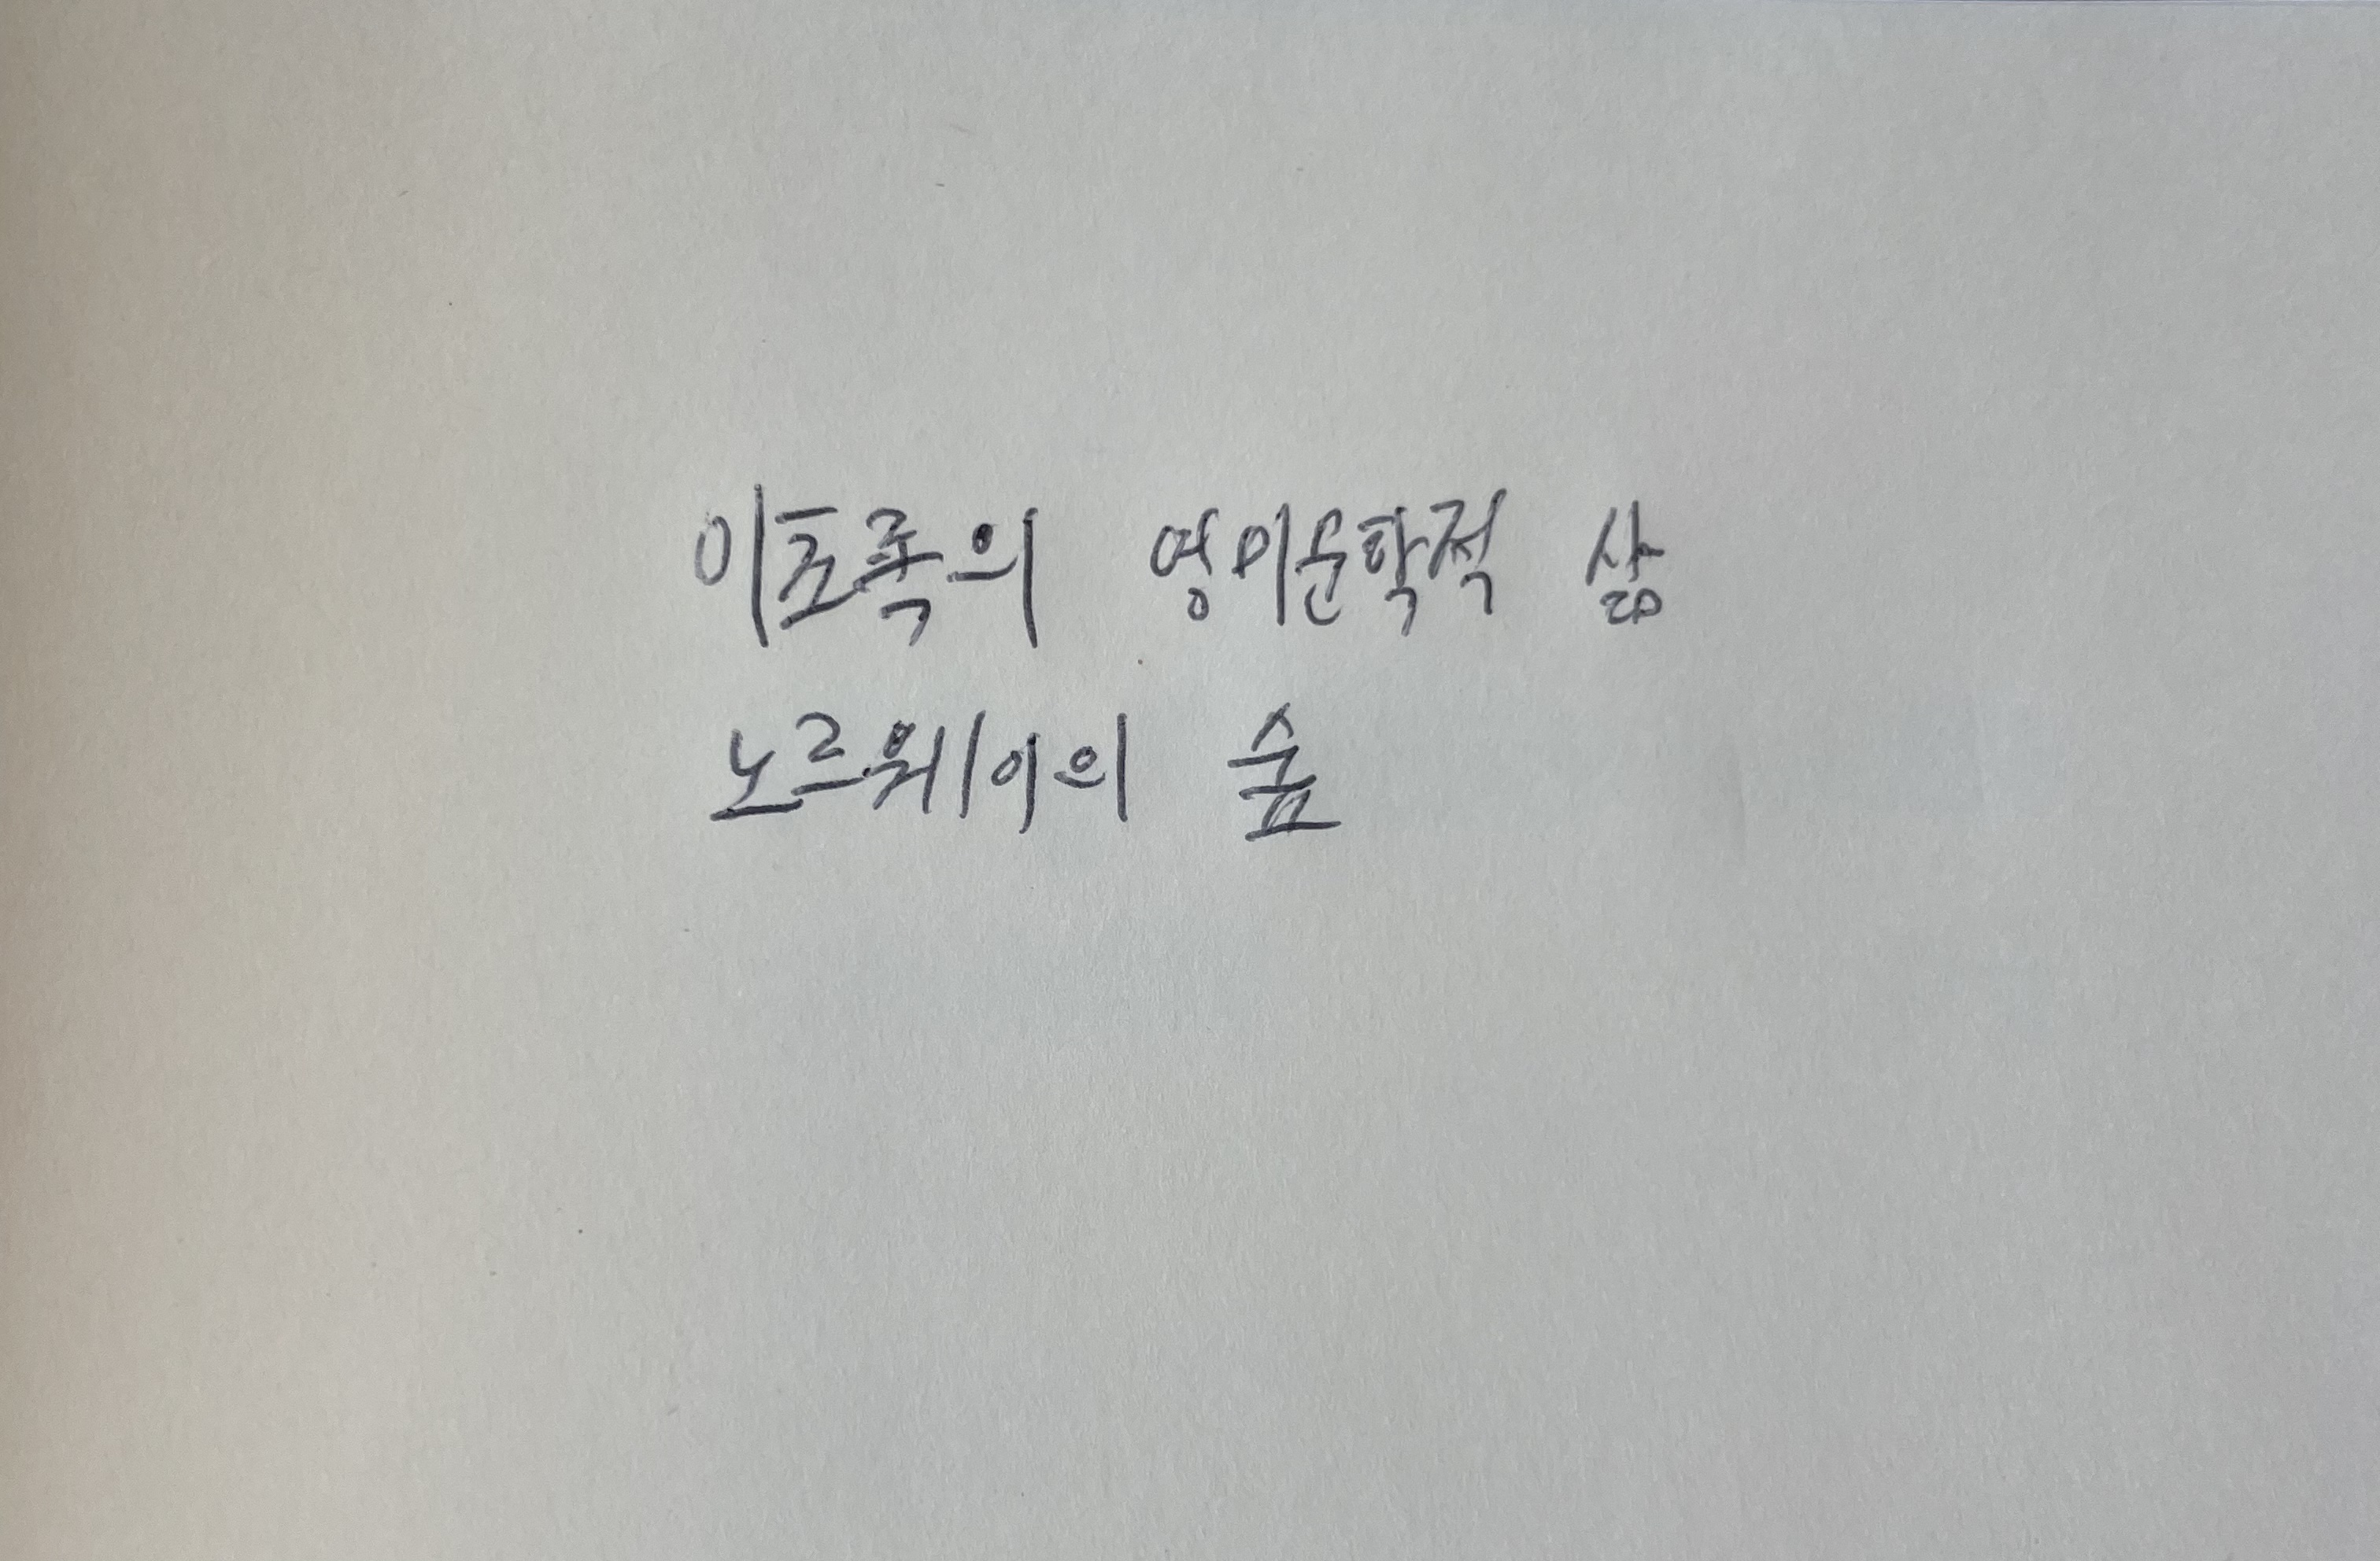 이초록의 영미문학적 삶
노르웨이의 숲